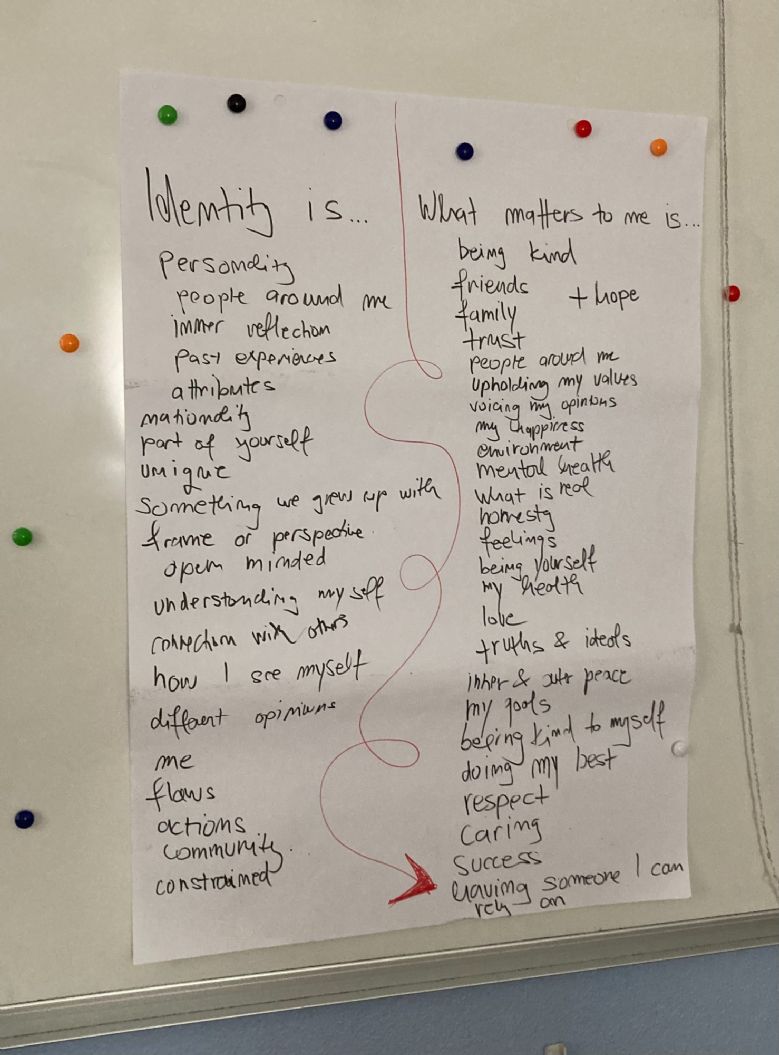 Identity is...
Personality
people around me
inner reflection
past experiences
attributes
nationality
part of yourself
unique
something we grew up with
frame or perspective
open minded
understanding myself
connection with others
how I see myself
different opinions
me
flaws
actions
community
constrained
What matters to me is...
being kind
friends
+ hope
family
trust
people around me
upholding my values
voicing my opinions
my happiness
environment
mental health
what is real
honesty
feelings
being yourself
my health
love
truths & ideals
inner & outr peace
my goals
beeing kind to myself
doing my best
respect
Caring
Success
having someone I can
rely on